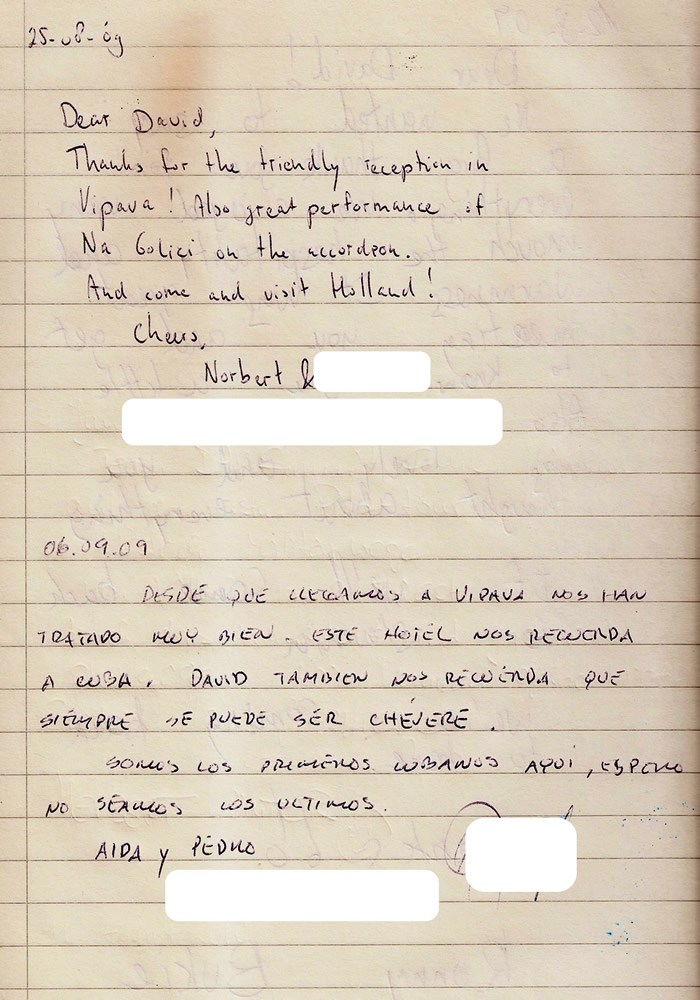 25-08-09
Dear David,
Thanks for the friendly reception in
Vipava! Also great performance of
Na Golici on the accordeon.
And come and visit Holland!
Cheers,
Norbert &
06.09.09
DESDE QUE LLEGAMOS A VIPAVA NOS HAN
TRATADO MUY BIEN. ESTE HOTEL NOS RECUERDA
A CUBA. DAVID TAMBIEN NOS RECUERDA QUE
SIEMPRE SE PUEDE SER CHEVERE.
SOMOS LOS PRIMEROS CUBANOS AQUI, ESPERO
NO SEAMOS LOS ULTIMOS.
AIDA y PEDRO